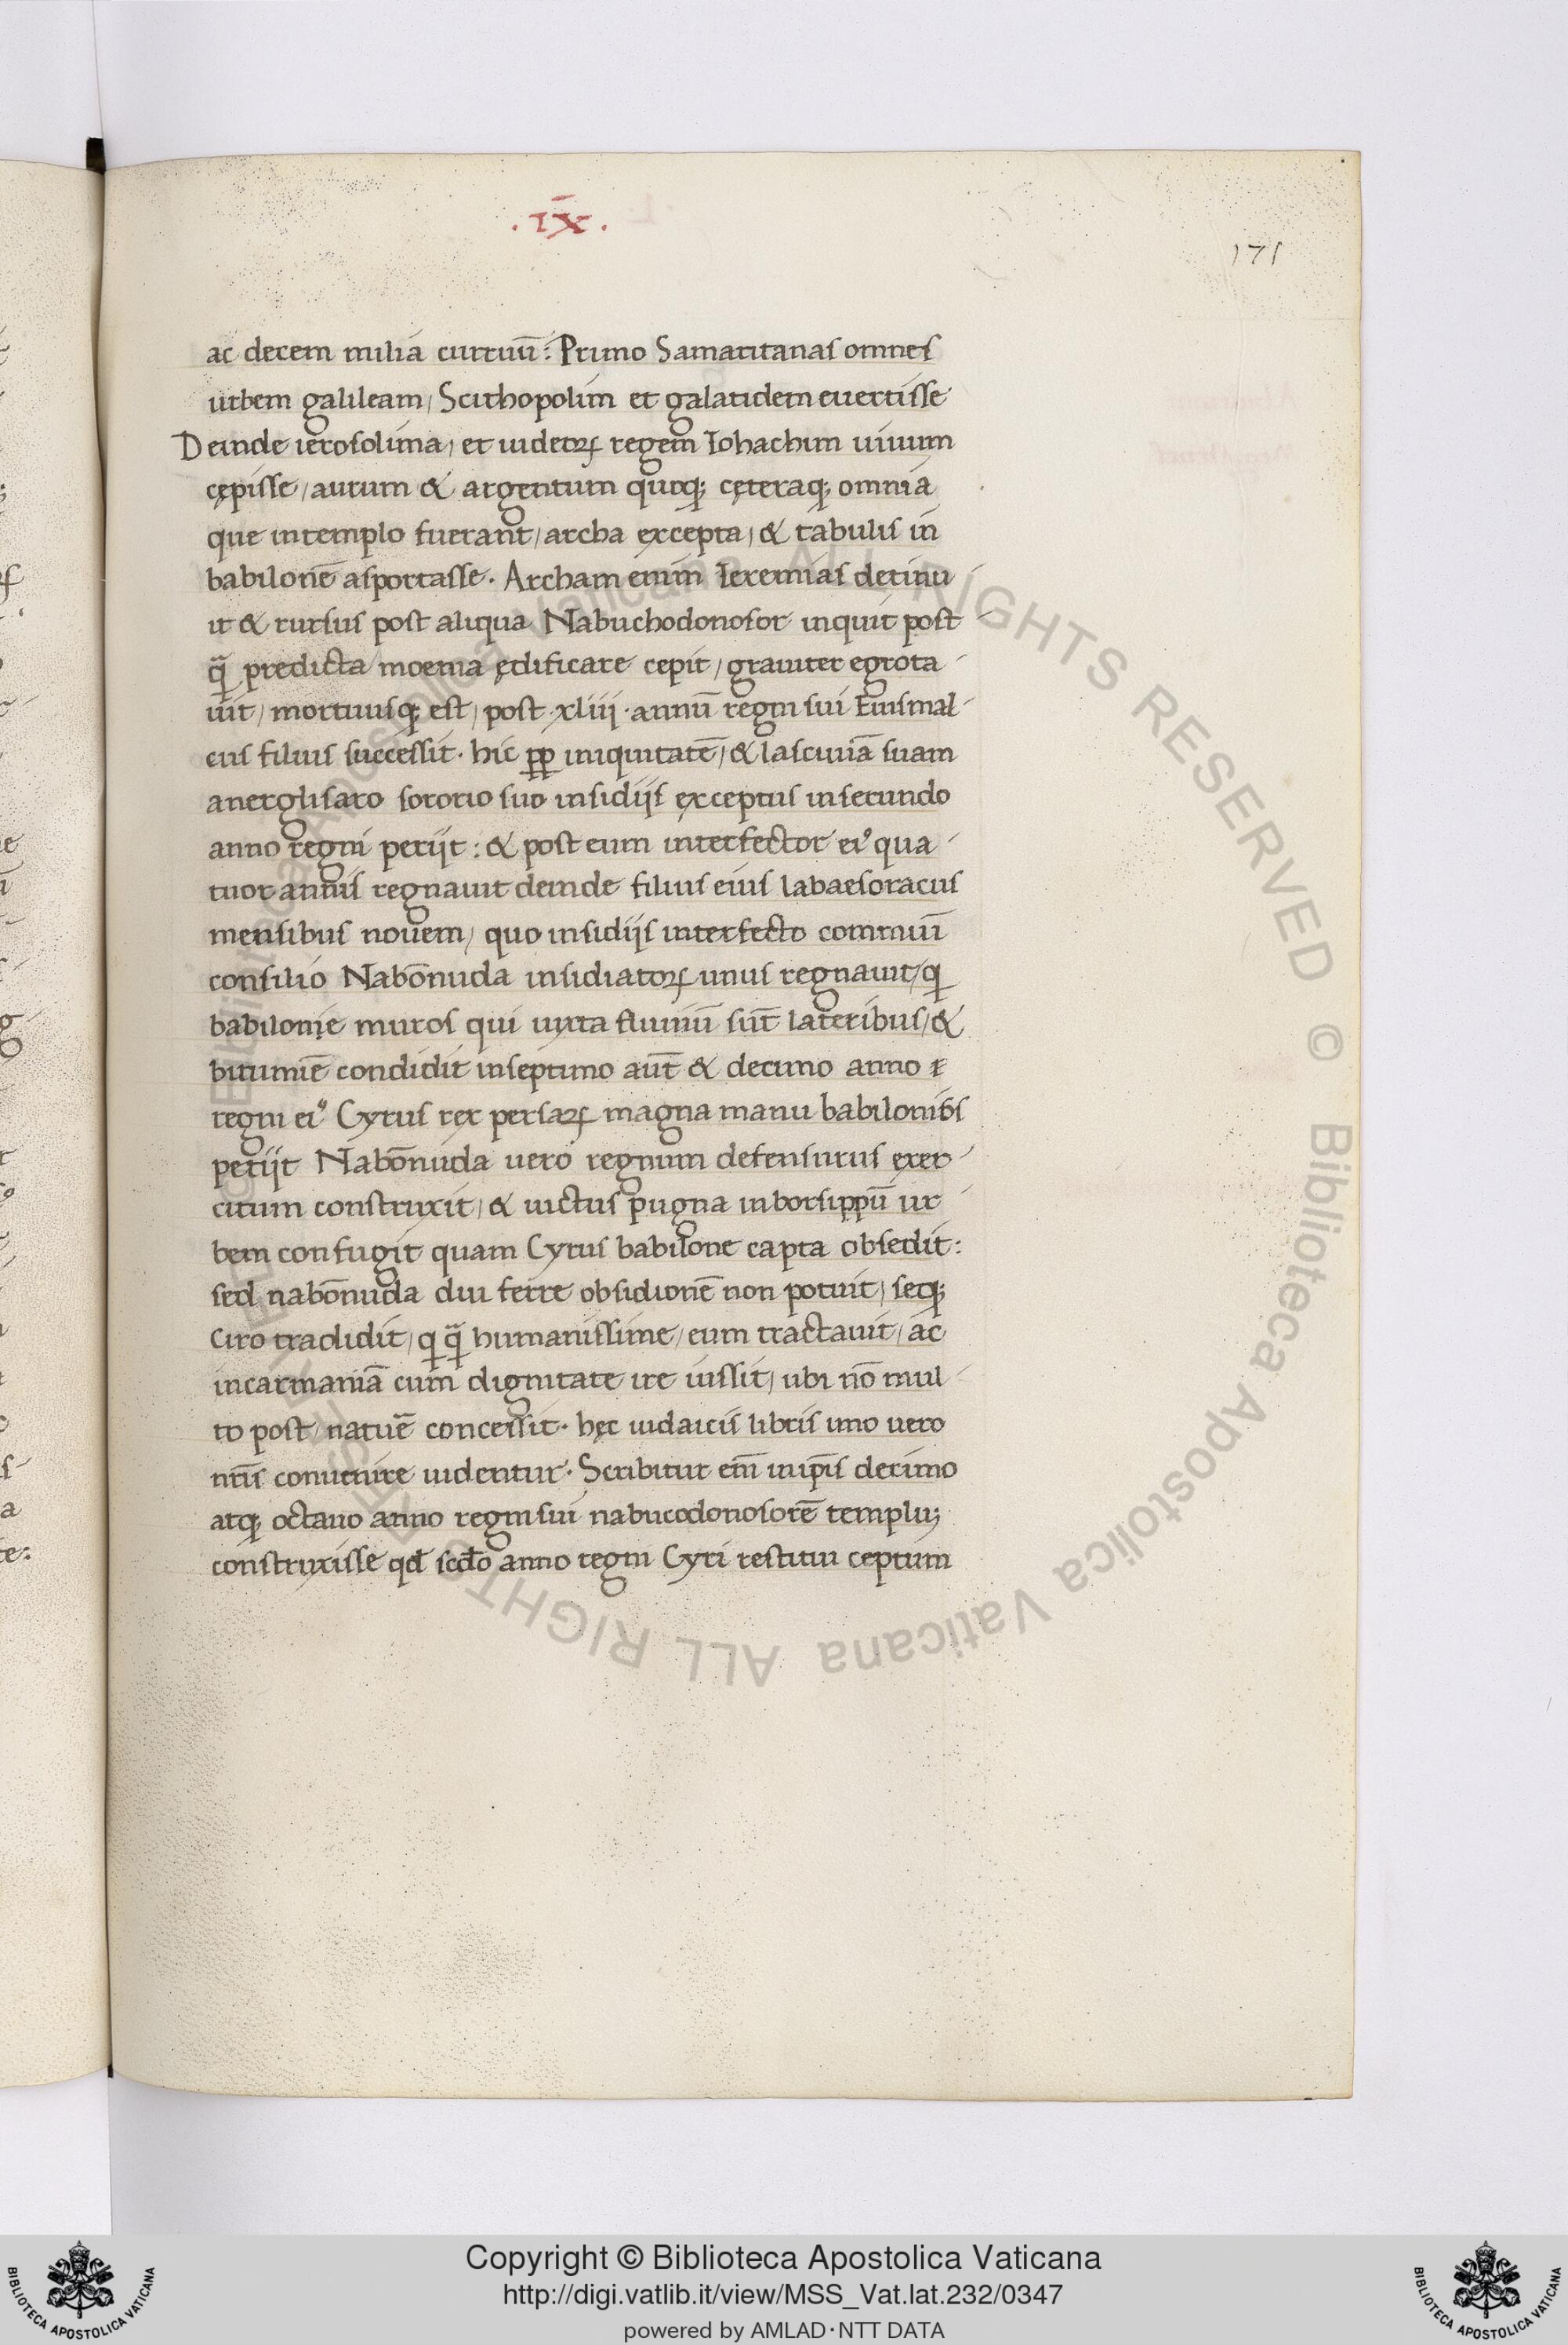 .IX̄.
171
ac decem milia curruū: Primo Samaritanas omnes
urbem galileam, Scithopolim et galatidem euertisse
Deinde ierosolima, et iudeoꝝ regem Iohachim uiuum
cępisse, aurum & argentum quoq; cęteraq; omnia
que in templo fuerant, archa excepta, & tabulis in
babilonē asportasse. Archam enim Ieremias detinu
it & rursus post aliqua Nabuchodonosor inquit post
q̄ predicta moenia ędificare cepit, grauiter egrota
uit, mortuusq; est, post xliii annū regni sui Euismal
cus filius successit. hic ꝓp iniquitatē, & lasciuiā suam
anerglisaro sororio suo insidijs exceptus in secundo
anno regni perijt: & post eum interfector eiꝰ qua
tuor annis regnauit deinde filius eius labaesoracus
mensibus nouem, quo insidijs interfecto commuūi
consilio Nabōnuda insidiatoꝝ unus regnauit, q
babilonię muros qui iuxta fluuiū sūt lateribus, &
bitumīe condidit in septimo aūt & decimo anno
regni eiꝰ Cyrus rex persaꝝ magna manu babilonibꝰ
petijt Nabōnuda uero regnum defensurus exer
citum construxit, & uictus pugna in borsippū ur
bem confugit quam Cyrus babilone capta obsedit:
sed nabōnuda diu ferre obsidionē non potuit, seq;
Ciro tradidit, q q̄ humanissime, eum tractauit, ac
in carmaniā cum dignitate ire iussit, ubi nō mul
to post, natuē concessit. hęc iudaicis libris imo uero
nr̄is conuenire uidentur. Scribitur em̄ in ip̄is decimo
atq; octauo anno regni sui nabucodonosorē templuꝫ
construxisse qđ scđo anno regni Cyri restitui ceptum
Copyright © Biblioteca Apostolica Vaticana
http://digi.vatlib.it/view/MSS_Vat.lat.232/0347
powered by AMLAD·NTT DATA